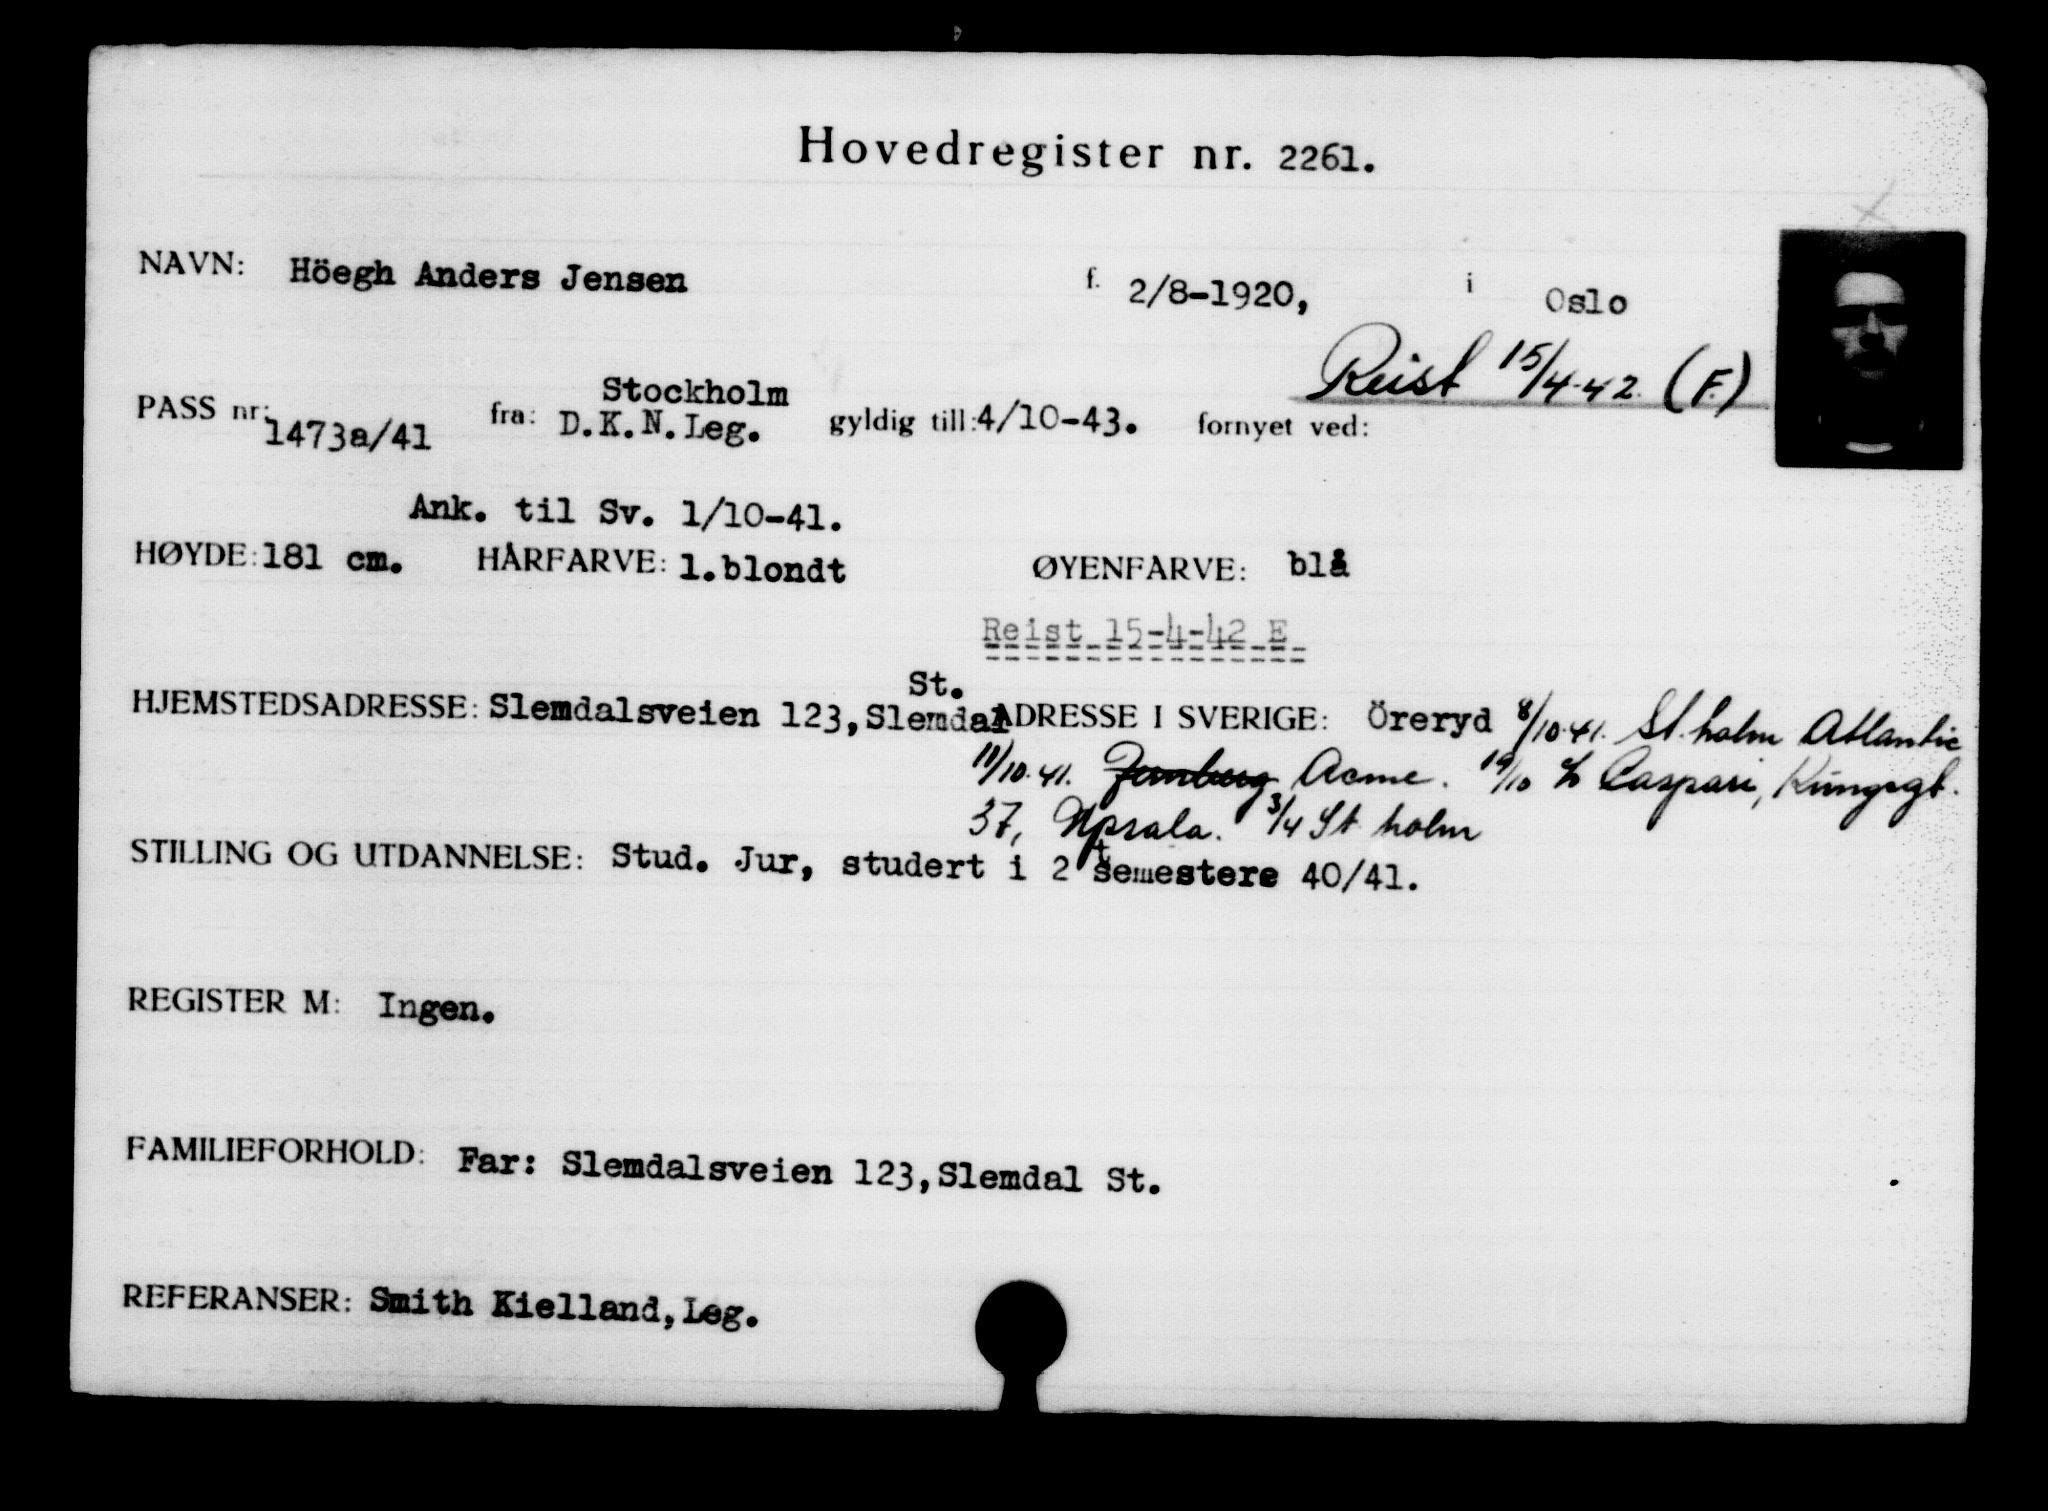 Hovedregister nr. 2261.
NAVN: Höegh Anders Jensen f. 2/8-1920, i Oslo
Reist 15/4-42. (F.)
Stockholm
PASS nr: 1473a/41 fra: D.K.N.Leg. gyldig till: 4/10-43. fornyet ved:
Ank. til Sv. 1/10-41.
HØYDE: 181 cm. HÅRFARVE: l.blondt ØYENFARVE: blå
Reist 15-4-42 E
St.
HJEMSTEDSADRESSE: Slemdalsveien 123, Slemdal ADRESSE I SVERIGE: Öreryd 8/10-41. St.holm Atlantic
11/10-41. Acme. 19/10 Caspari, Kungsgt.
37, Upsala. 3/4 St holm
STILLING OG UTDANNELSE: Stud. Jur, studert i 2 semestere 40/41.
REGISTER M: Ingen.
FAMILIEFORHOLD: Far: Slemdalsveien 123, Slemdal St.
REFERANSER: Smith Kielland, Leg.